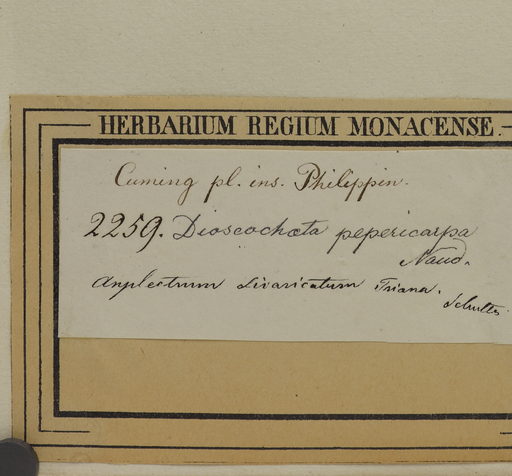 HERBARIUM REGIUM MONACENSE.
Cuming pl. ins. Philippin.
2259. Dioscochæta pepericarpa
Naud.
Anplectrum divaricatum Triana.
Schultes